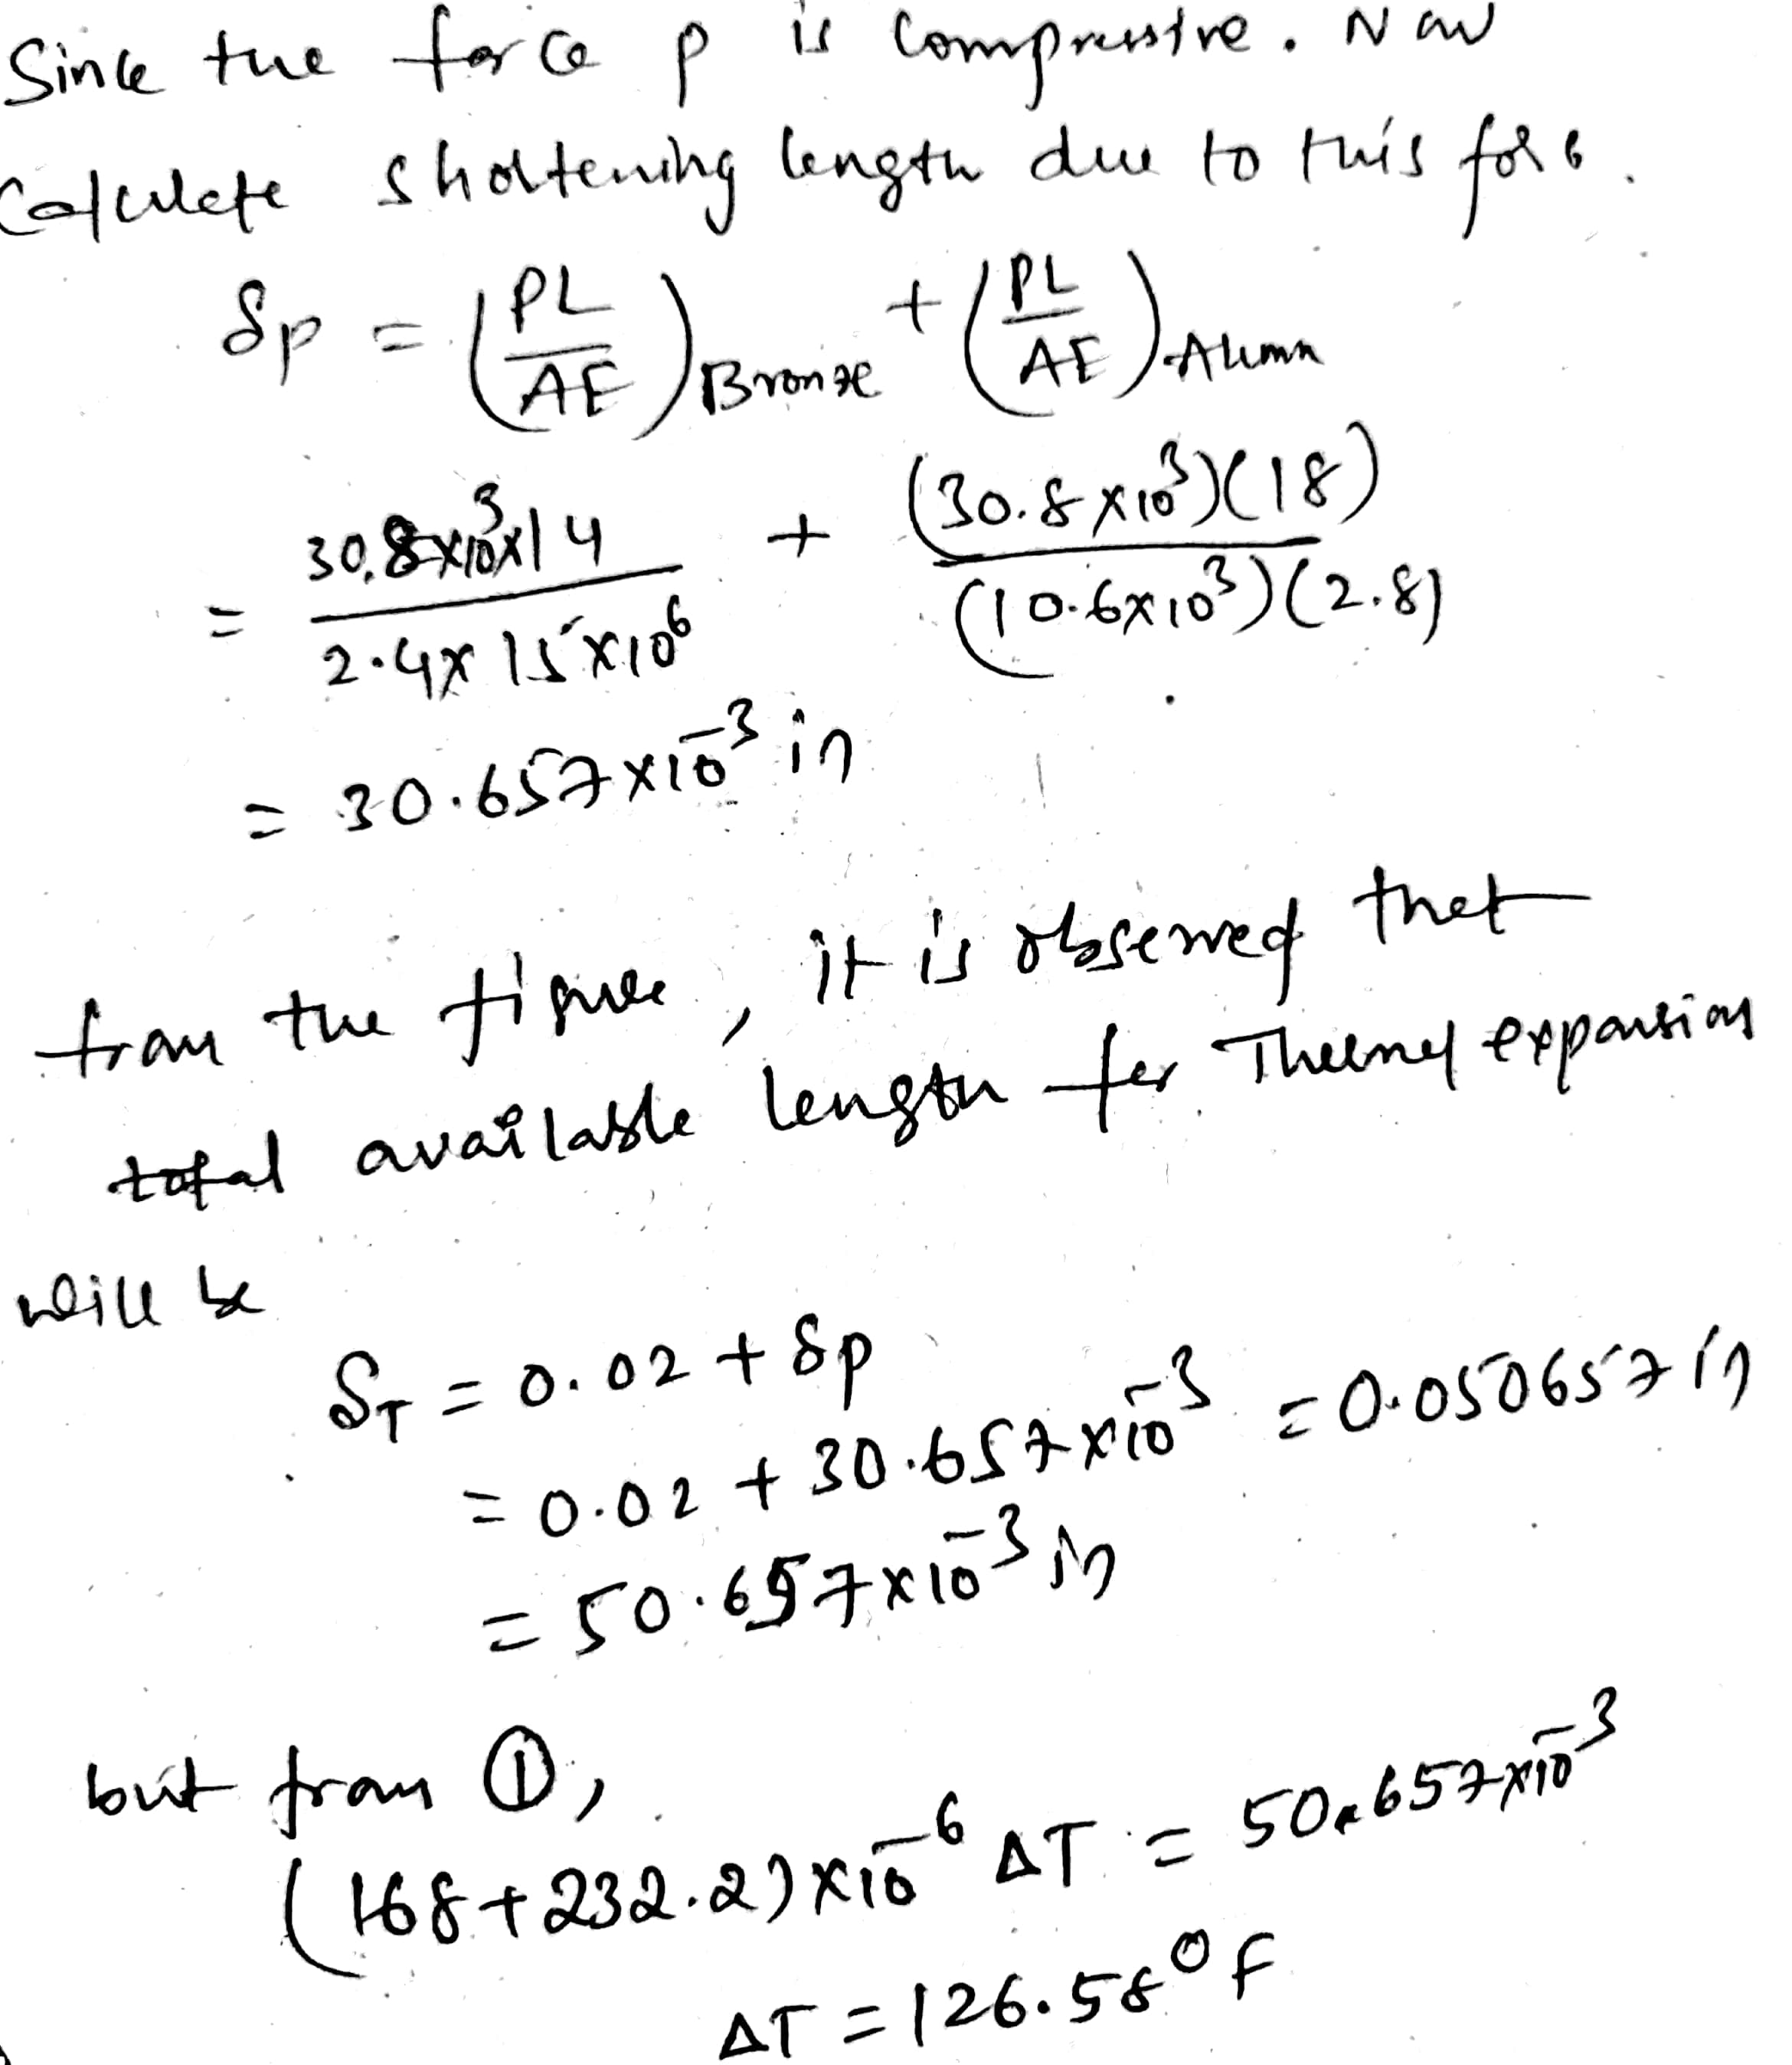 Since the force p is compressive. Now
Calculate shortening length due to this force.
δp = (PL/AE)Bronze + (PL/AE)Alumn
= 30.8x10³x14 / 2.4x15x10⁶ + (30.8x10³)(18) / (10.6x10³)(2.8)
= 30.657x10⁻³ in
from the figure, it is observed that
total available length for Thermal expansion
will be
δT = 0.02 + δp
= 0.02 + 30.657x10⁻³ = 0.050657 in
= 50.657x10⁻³ in
but from ①,
(168+232.2)x10⁻⁶ ΔT = 50.657x10⁻³
ΔT = 126.58°F